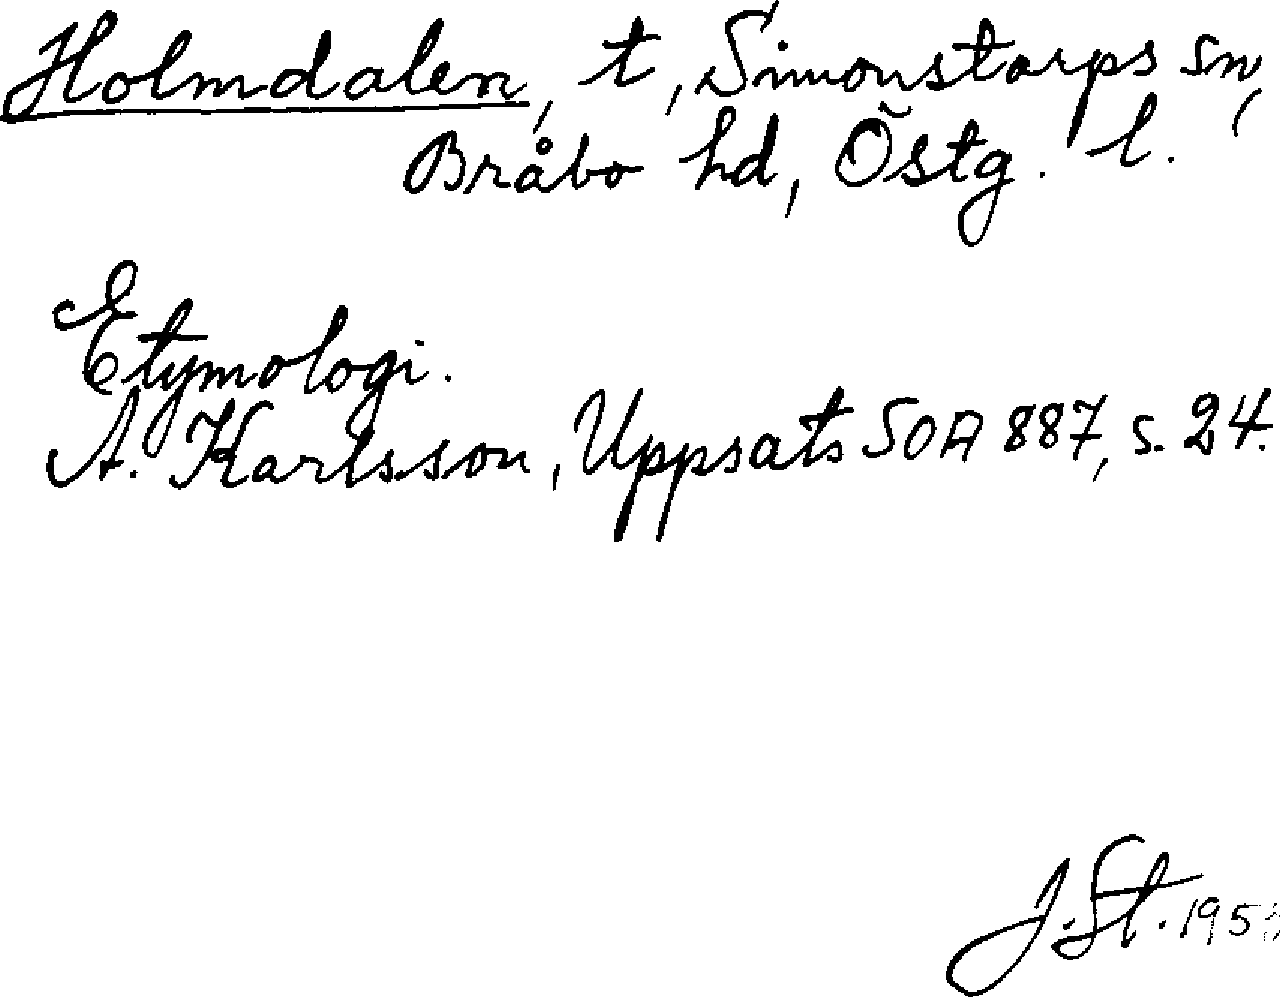 Holmdalen, t, Simonstorps sn,
Bråbo hd, Östg. l.
Etymologi.
A. Karlsson, Uppsats SOA 887, s. 24.
J. St.